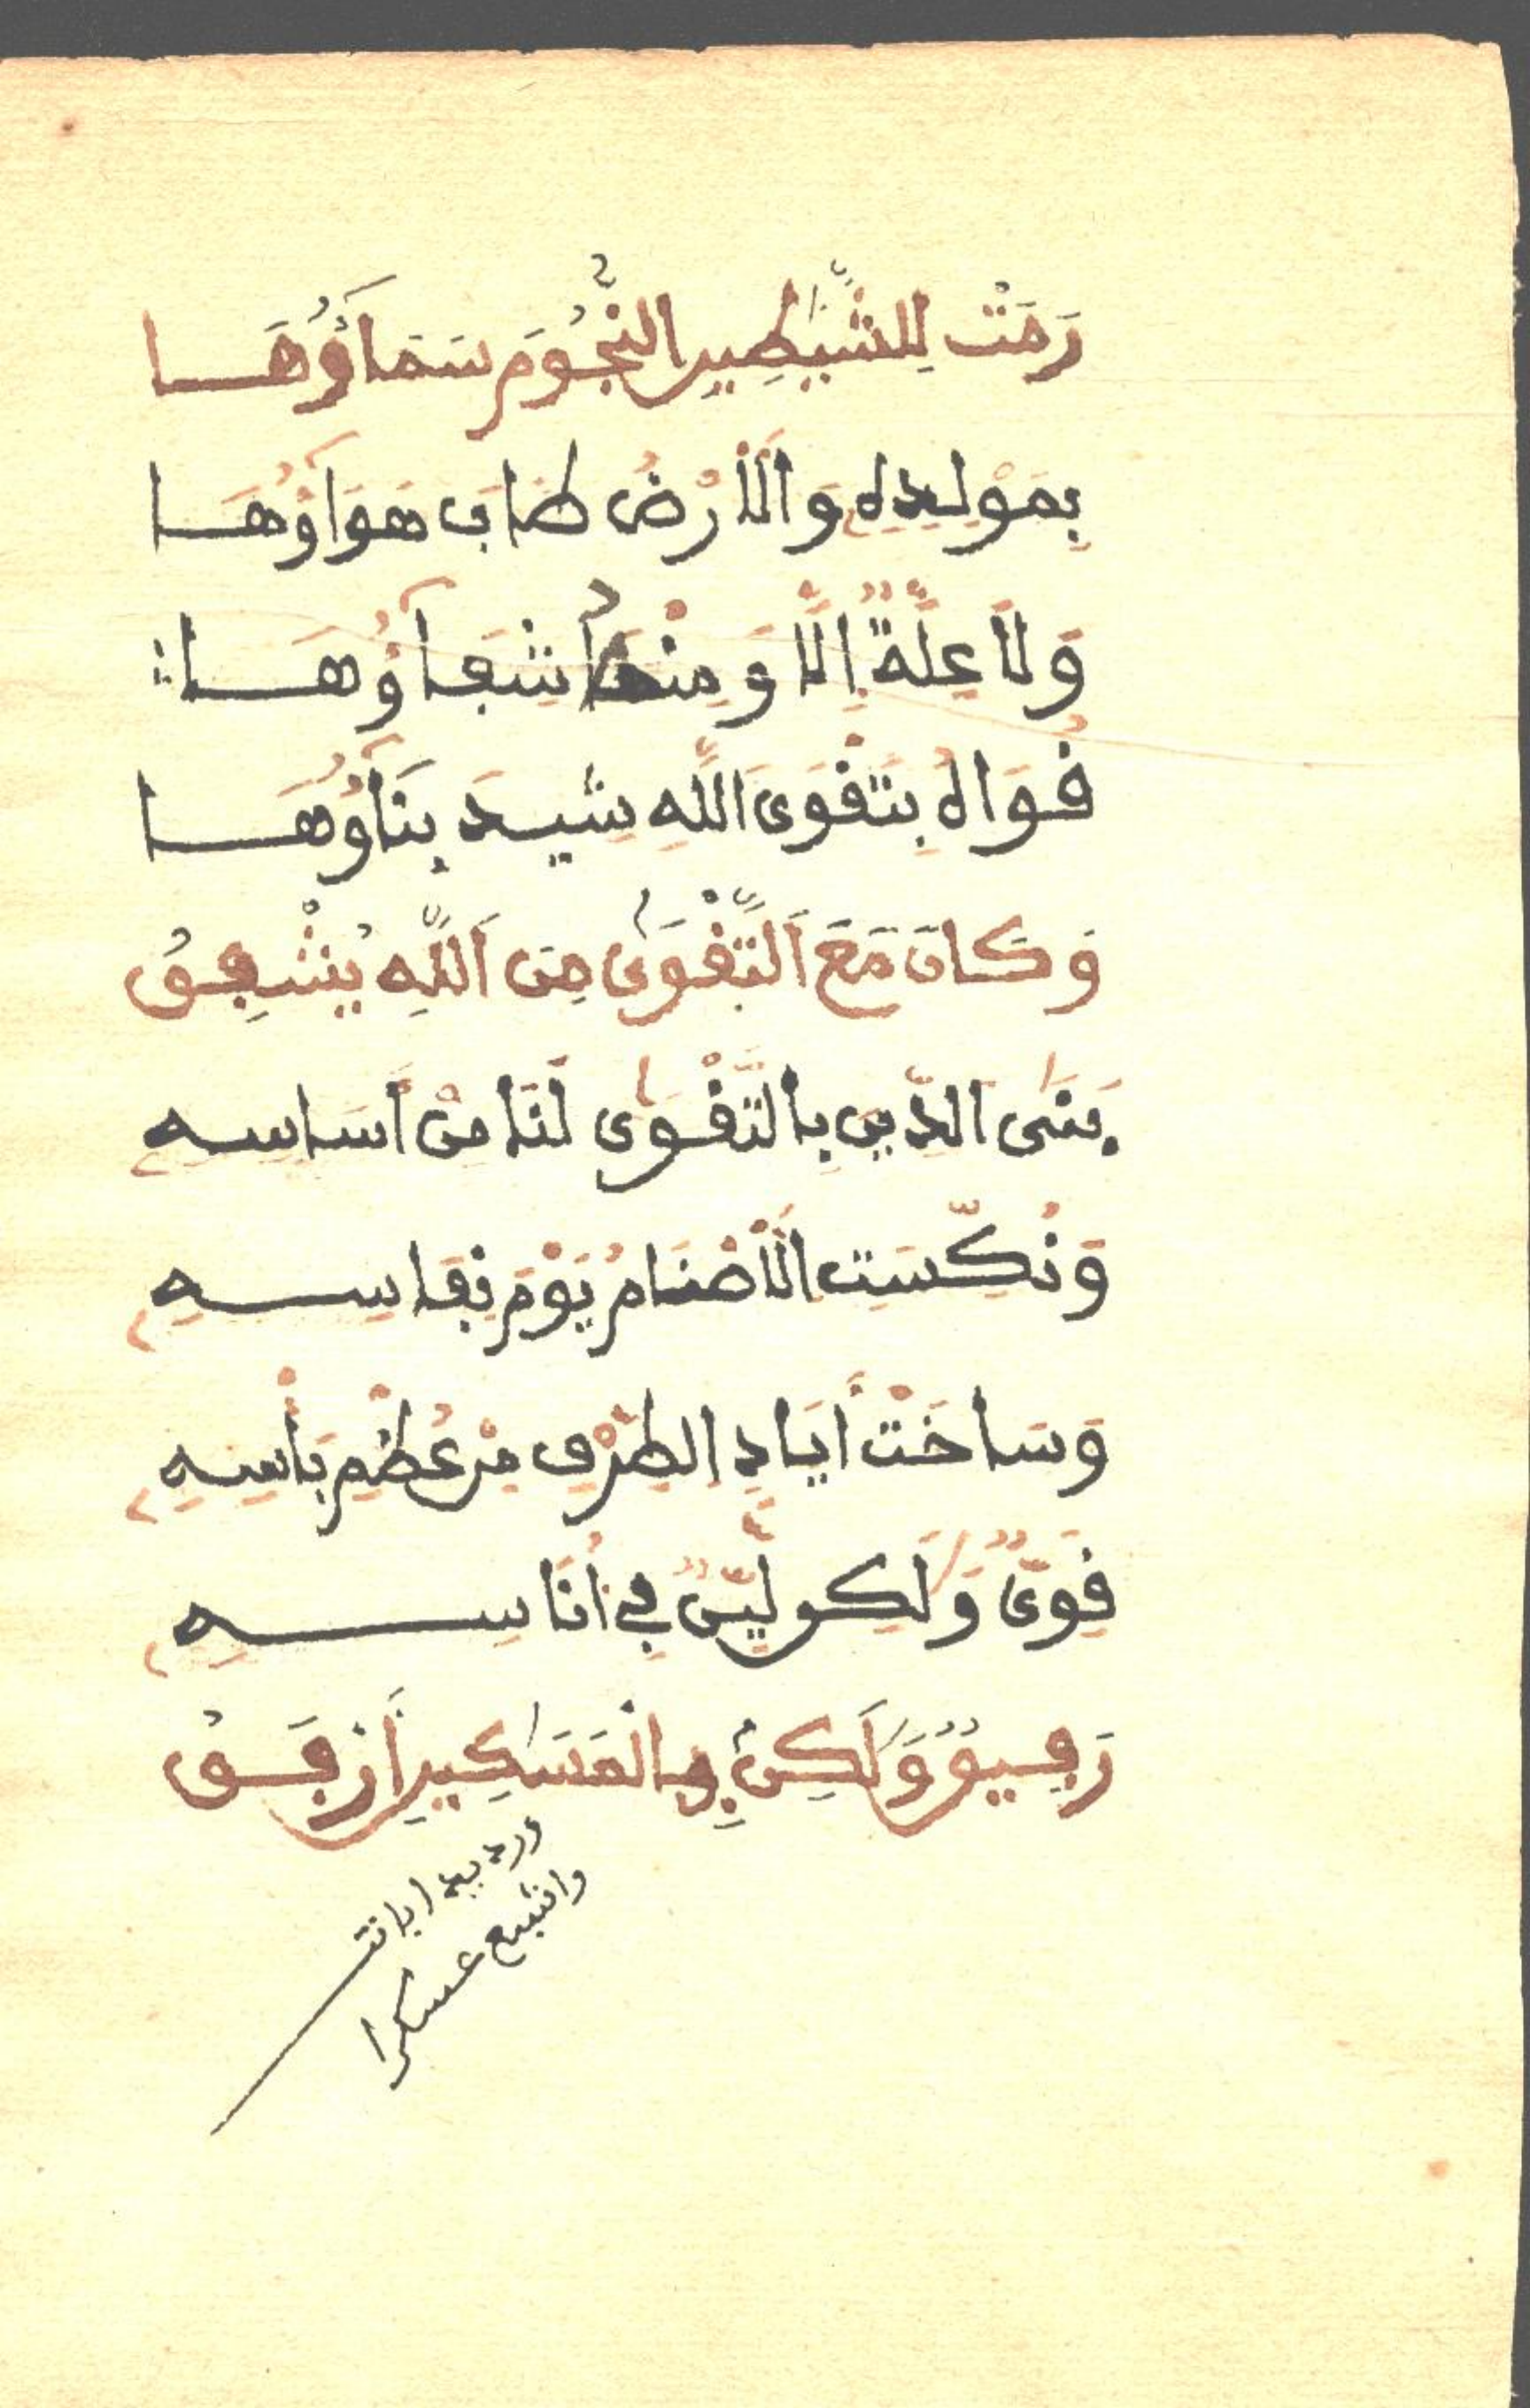 رَمَتْ لِلشَّيَٰطِينِ النُّجُومَ سَمَآؤُهَا
بِمَوْلِدِهِ وَالَارْضُ طَابَ هَوَآؤُهَا
وَلَا عِلَّةٌ إِلَّا وَمِنْهُ شِفَآؤُهَا
قُوَاهُ بِتَقْوَى اللَّهِ شِيدَ بِنَآؤُهَا
وَكَانَ مَعَ التَّقْوَىٰ مِنَ اللَّهِ يُشْفِقُ
بَنَى الدِّينَ بِالتَّقْوَىٰ لَنَا مِنْ أَسَاسِهِ
وَنُكِّسَتِ الَاصْنَامُ يَوْمَ نِفَاسِهِ
وَسَاخَتْ أَيَادِ الطِّرْفِ مِنْ عُظْمِ بَأْسِهِ
قَوِيٌّ وَلَٰكِن لَيِّنٌ فِي أُنَاسِهِ
رَفِيقٌ وَلَٰكِنْ بِالْمَسَٰكِينِ أَرْفَقُ
وانتبع عسكرا